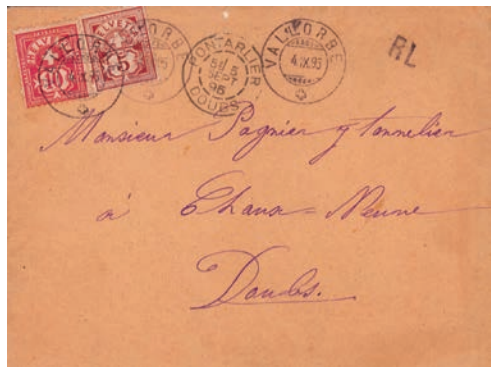 HELVETIA
10
HELVETIA
5
VALLORBE
PONTARLIER
5 SEPT
95
DOUBS
VALLORBE
4.IX.95
RL
Monsieur Pagnier
à Chaux=Neuve
Doubs.